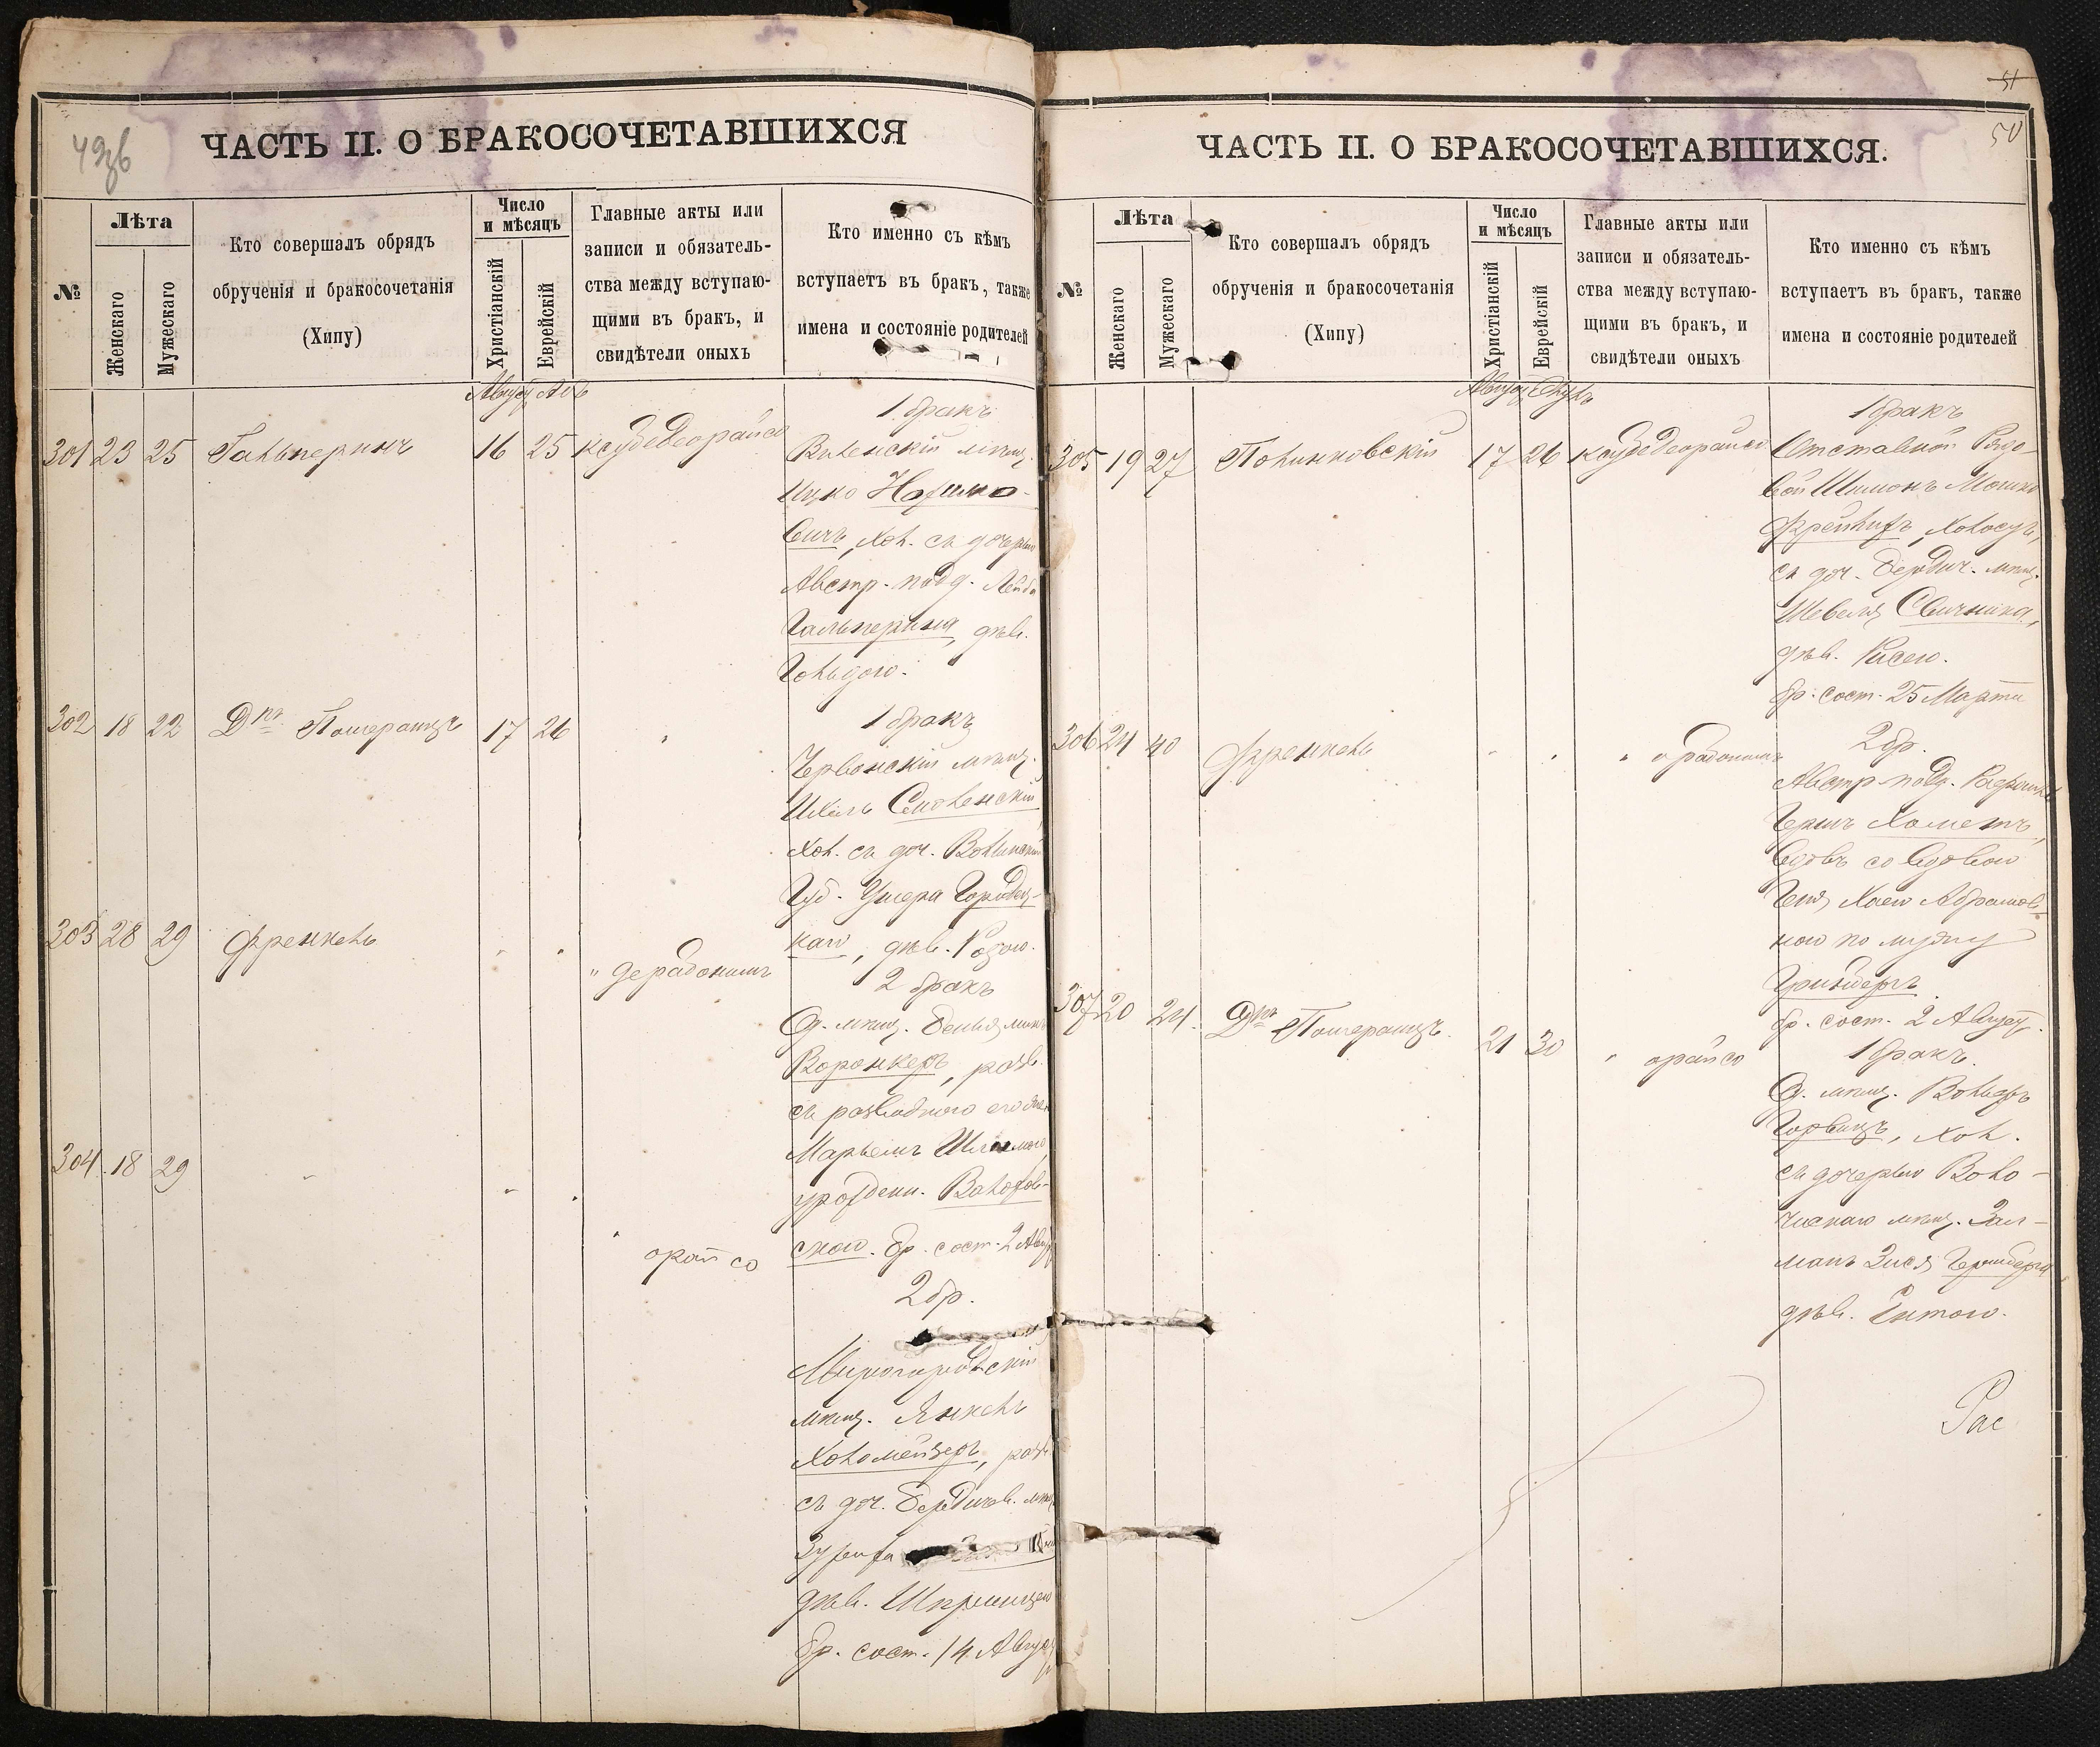 ЧАСТЬ II. О БРАКОСОЧЕТАВШИХСЯ
№
Лѣта
Женскаго
Мужескаго
Кто совершалъ обрядъ
обрученія и бракосочетанія
(Хипу)
Число
и мѣсяцъ
Христіанскій
Еврейскій
Главные акты или
записи и обязатель-
ства между вступаю-
щими въ бракъ, и
свидѣтели оныхъ
Кто именно съ кѣмъ
вступаетъ въ бракъ, также
имена и состояніе родителей
Август Абъ
301 23 25 Гальперинъ 16 25 ксубедеорайсо
1 бракъ
Виленскій мѣщ.
Ицко
Хол. съ дочерью
Австр. подд. Лейба
Гальперина, дѣв.
Голидою.
302 18 22 Дръ Померанцъ 17 26 "
1 бракъ
мѣщ.
Ихель Смоленскій
Хол. съ доч. Волынской
Губ. Ушера
каго, дѣв. Розою.
303 28 29 Френкель " " " дерабонимъ
2 бракъ
Од. мѣщ. Беньяминъ
Воронкеръ, разв.
съ разводною его
Марьемъ
урожден.
скою. Бр. сост. 2 Авг.
304 18 29 " " " " орайсо
2 бр.
мѣщ. Янкель
Холомензеръ, разв.
съ доч. Бердичев. мѣщ.
дѣв. Шпринцею
бр. сост. 14 Август
51
50
ЧАСТЬ II. О БРАКОСОЧЕТАВШИХСЯ.
№
Лѣта
Женскаго
Мужескаго
Кто совершалъ обрядъ
обрученія и бракосочетанія
(Хипу)
Число
и мѣсяцъ
Христіанскій
Еврейскій
Главные акты или
записи и обязатель-
ства между вступаю-
щими въ бракъ, и
свидѣтели оныхъ
Кто именно съ кѣмъ
вступаетъ въ бракъ, также
имена и состояніе родителей
Август Элулъ
305 19 27 Полинковскій 17 26 ксубедеорайсо
1 бракъ
Отставной Рядо-
вой Шимонъ Мошко
Холост,
съ доч. Бердич. мѣщ.
Шевеля Свичника,
дѣв. Рисею.
бр. сост. 25 Марта
306 24 40 Френкель " " " дерабонимъ
2 бр.
Австр. подд.
Гершъ Хометъ,
вдовъ со вдовою
Геня Хаею Абрамов-
ною по мужу
Гринбергъ.
бр. сост. 2 Август.
307 20 24 Дръ Померанцъ. 21 30 " орайсо
1 бракъ.
Од. мѣщ. Вольфъ
Горвицъ, хол.
съ дочерью Воло-
чискаго мѣщ. Зал-
манъ Зися
дѣв. Гитою.
Рас